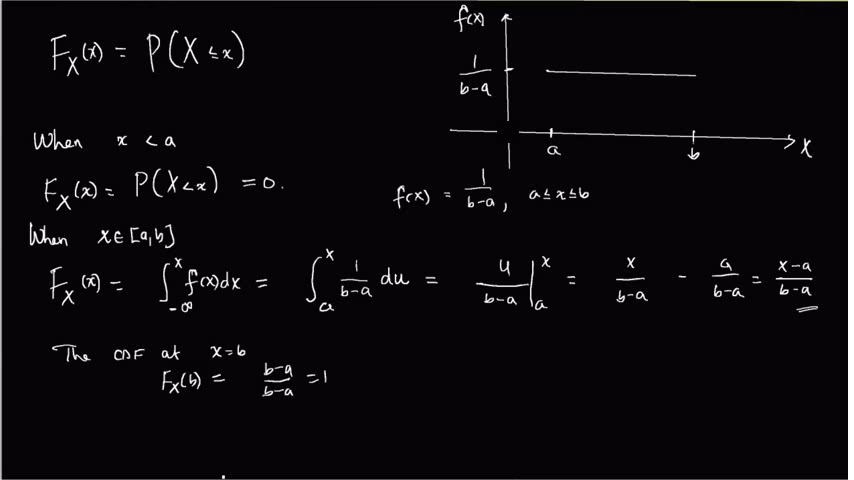 F_X(x) = P(X ≤ x)
f(x)
1/(b-a)
a
b
X
When x < a
F_X(x) = P(X<x) = 0.
f(x) = 1/(b-a), a ≤ x ≤ b
When x ∈ [a,b]
F_X(x) = ∫_{-∞}^{x} f(x)dx = ∫_{a}^{x} 1/(b-a) du = u/(b-a) |_{a}^{x} = x/(b-a) - a/(b-a) = (x-a)/(b-a)
The CDF at x=b
F_X(b) = (b-a)/(b-a) = 1